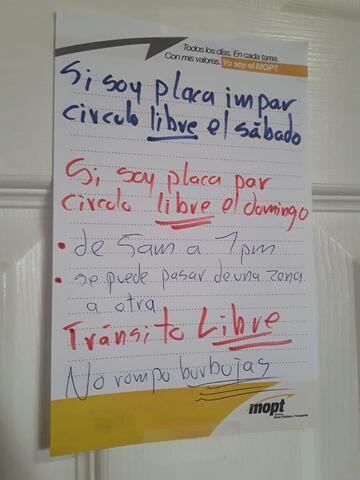 Todos los días. En cada tarea.
Con mis valores. Yo soy el MOPT.
Si soy placa impar
circulo libre el sábado
Si soy placa par
circulo libre el domingo
• de 5am a 7pm
• se puede pasar de una zona
a otra
Tránsito Libre
No rompo burbujas
mopt